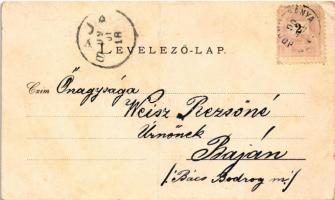 LEVELEZŐ-LAP.
BAJA
Czim Őnagysága
Weisz Rezsőné
Úrnőnek
Baján
/: Bács Bodrog m :/